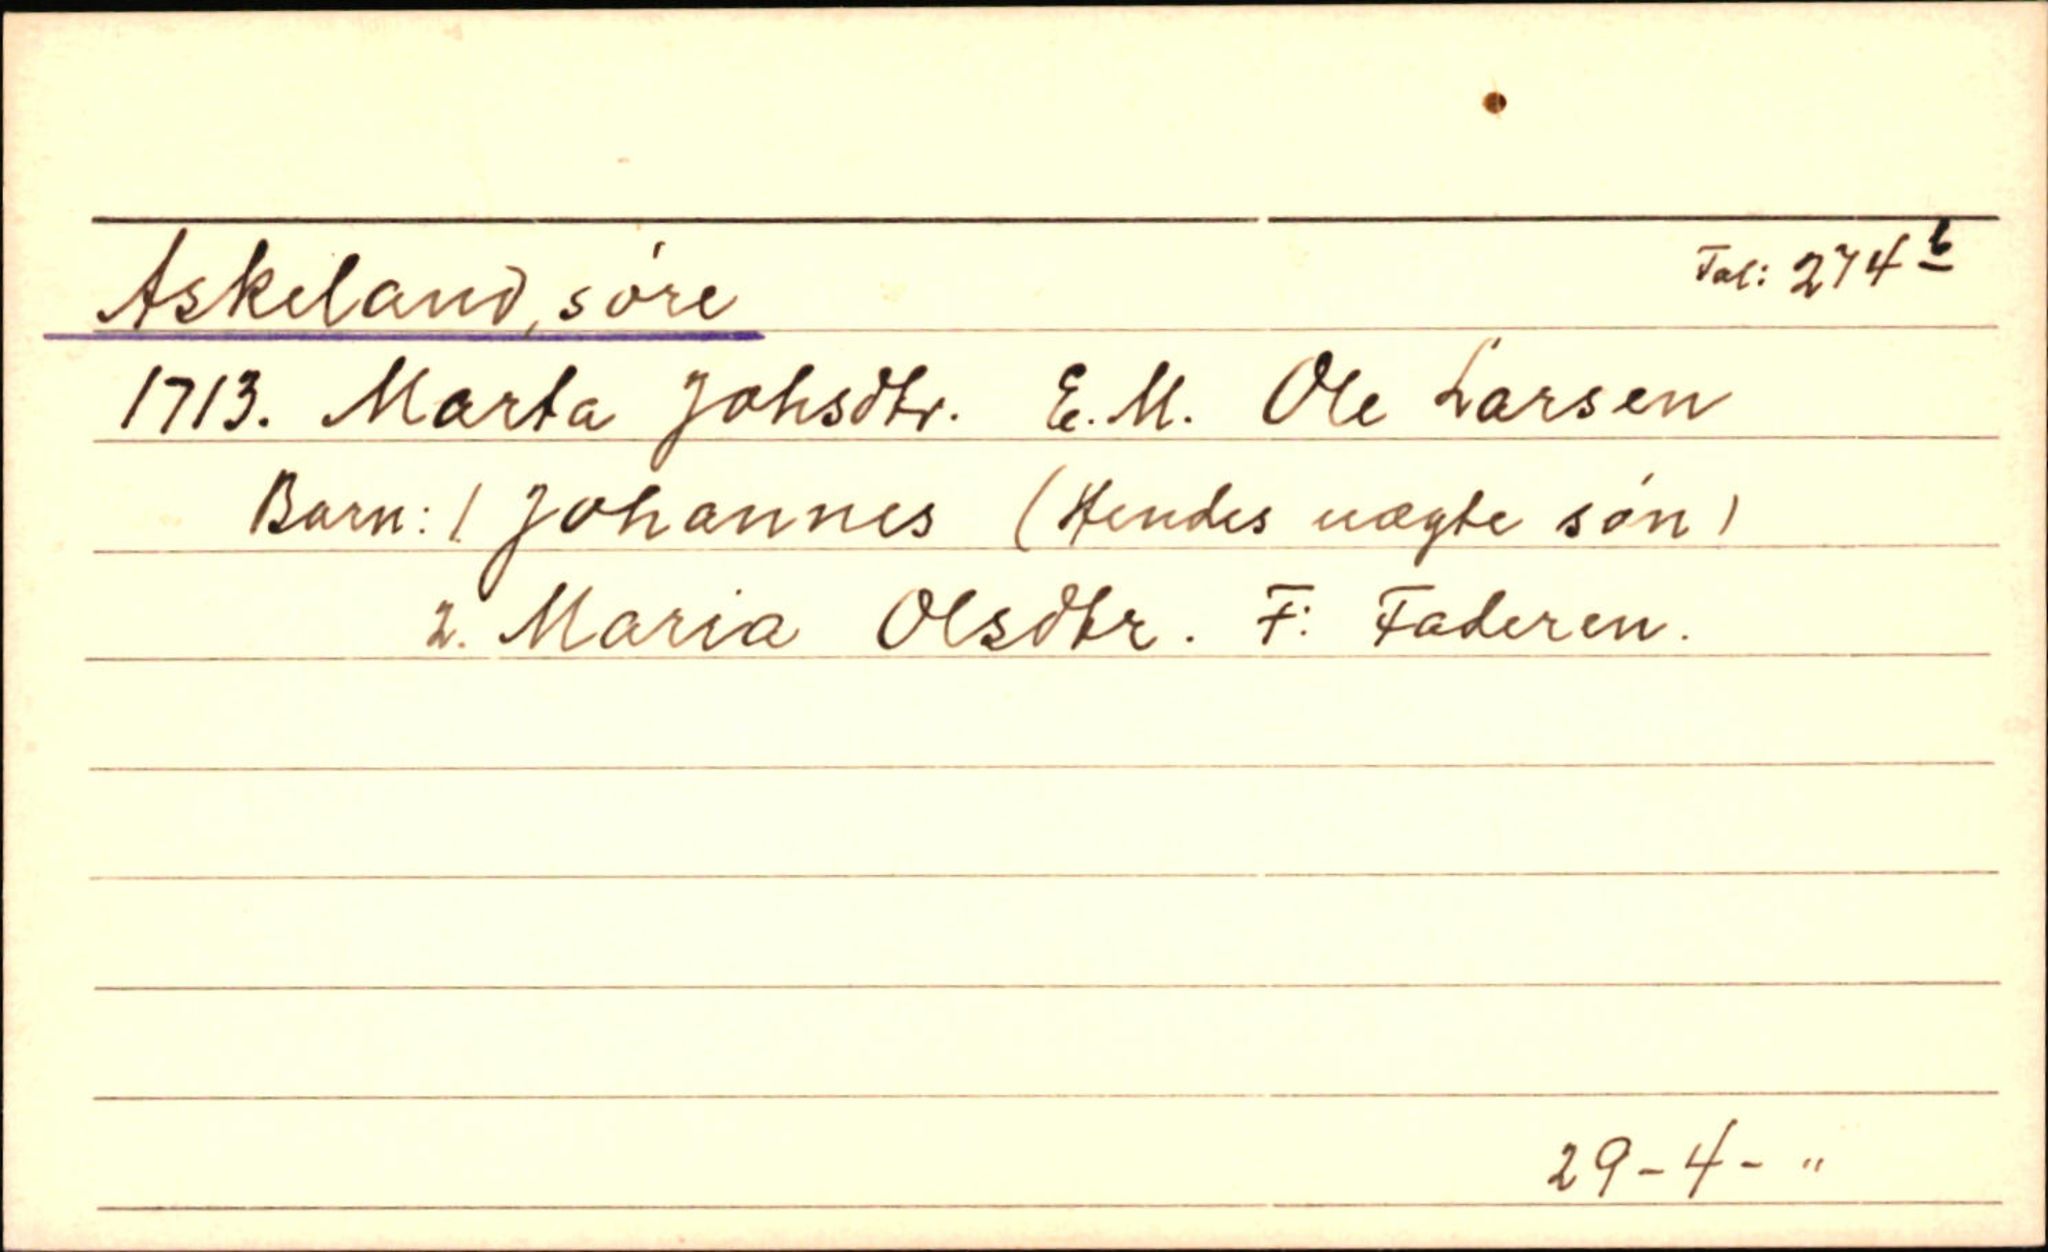 Askeland, söre Fol: 274 b
1713. Marta Johsdtr. E.M. Ole Larsen
Barn: 1 Johannes (Hendes uægte sön)
2. Maria Olsdtr. F: Faderen.
29-4- "